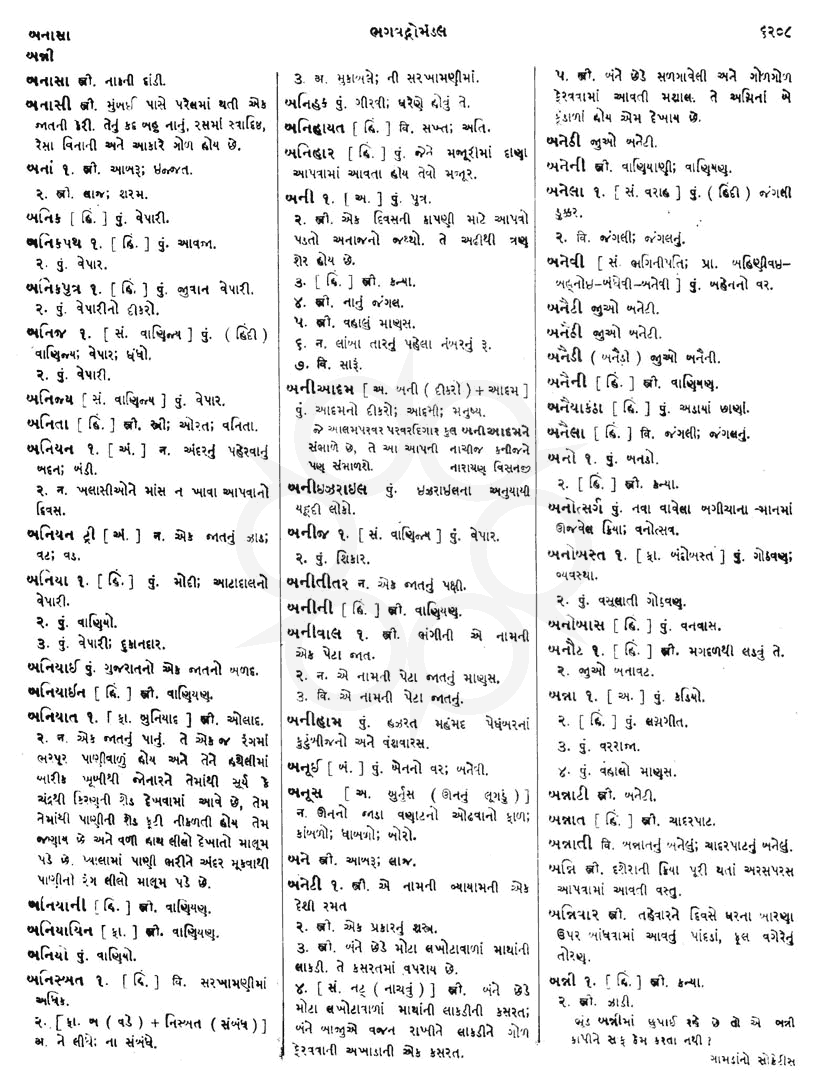 બનાસા
બન્ની
ભગવદ્ગોમંડલ
૬૨૦૮
બનાસા સ્ત્રી. નાકની દાંડી.
બનાસી સ્ત્રી. મુંબઈ પાસે પરેલમાં થતી એક
જાતની કેરી. તેનું કદ બહુ નાનું, રસમાં સ્વાદિષ્ટ,
રેસા વિનાની અને આકારે ગોળ હોય છે.
બનાં ૧. સ્ત્રી. આબરૂ; ઇજ્જત.
૨. સ્ત્રી. લાજ; શરમ.
બનિક [ હિં. ] પું. વેપારી.
બનિકપથ ૧. [ હિં. ] પું. આવજા.
૨. પું. વેપાર.
બનિકપુત્ર ૧. [ હિં. ] પું. જુવાન વેપારી.
૨. પું. વેપારીનો દીકરો.
બનિજ ૧. [ સં. વાણિજ્ય ] પું. ( હિંદી )
વાણિજ્ય; વેપાર; ધંધો.
૨. પું. વેપારી.
બનિજ્ય [ સં. વાણિજ્ય ] પું. વેપાર.
બનિતા [ હિં. ] સ્ત્રી. સ્ત્રી; ઓરત; વનિતા.
બનિયન ૧. [ અં. ] ન. અંદરનું પહેરવાનું
બદન; બંડી.
૨. ન. ખલાસીઓને માંસ ન ખાવા આપવાનો
દિવસ.
બનિયન ટ્રી [ અં. ] ન. એક જાતનું ઝાડ;
વટ; વડ.
બનિયા ૧. [ હિં. ] પું. મોદી; આટાદાલનો
વેપારી.
૨. પું. વાણિયો.
૩. પું. વેપારી; દુકાનદાર.
બનિયાઈ પું. ગુજરાતનો એક જાતનો બળદ.
બનિયાઈન [ હિં. ] સ્ત્રી. વાણિયણ.
બનિયાત ૧. [ ફા. બુનિયાદ ] સ્ત્રી. ઓલાદ.
૨. ન. એક જાતનું પાનું. તે એક જ રંગમાં
ભરપૂર પાણીવાળું હોય અને તેને હથેલીમાં
બારીક ખૂબીથી જોનારને તેમાંથી સૂર્ય કે
ચંદ્રથી કિરણની શેડ દેખવામાં આવે છે, તેમ
તેમાંથી પાણીની શેડ ફૂટી નીકળતી હોય તેમ
જણાય છે અને વળી હાથ લીલો દેખાતો માલૂમ
પડે છે. પ્યાલામાં પાણી ભરીને અંદર મૂકવાથી
પાણીનો રંગ લીલો માલૂમ પડે છે.
બનિયાની [ હિં. ] સ્ત્રી. વાણિયણ.
બનિયાયિન [ ફા. ] સ્ત્રી. વાણિયણ.
બનિયો પું. વાણિયો.
બનિસ્બત ૧. [ હિં. ] વિ. સરખામણીમાં
અધિક.
૨. [ ફા. બ ( વડે ) + નિસ્બત ( સંબંધ ) ]
અ. ને લીધે; ના સંબંધે.
૩. અ. મુકાબલે; ની સરખામણીમાં.
બનિહુક પું. ગીરવી; ઘરેણે હોવું તે.
બનિહાયત [ હિં. ] વિ. સખ્ત; અતિ.
બનિહાર [ હિં. ] પું. જેને મજૂરીમાં દાણા
આપવામાં આવતા હોય તેવો મજૂર.
બની ૧. [ અ. ] પું. પુત્ર.
૨. સ્ત્રી. એક દિવસની કાપણી માટે આપવો
પડતો અનાજનો જથ્થો. તે અઢીથી ત્રણ
શેર હોય છે.
૩. [ હિં. ] સ્ત્રી. કન્યા.
૪. સ્ત્રી. નાનું જંગલ.
૫. સ્ત્રી. વહાલું માણસ.
૬. ન. લાંબા તારનું પહેલા નંબરનું રૂ.
૭. વિ. સારૂં.
બનીઆદમ [ અ. બની ( દીકરો ) + આદમ ]
પું. આદમનો દીકરો; આદમી; મનુષ્ય.
જે આલમપરવર પરવરદિગાર કુલ બનીઆદમને
સંભાળે છે, તે આ આપની નાચીજ કનીજને
પણ સંભાળશે. નારાયણ વિસનજી
બનીઇઝરાઇલ પું. ઇઝરાઇલના અનુયાયી
યહૂદી લોકો.
બનીજ ૧. [ સં. વાણિજ્ય ] પું. વેપાર.
૨. પું. શિકાર.
બનીતીતર ન. એક જાતનું પક્ષી.
બનીની [ હિં. ] સ્ત્રી. વાણિયણ.
બનીવાલ ૧. સ્ત્રી. ભંગીની એ નામની
એક પેટા જાત.
૨. ન. એ નામની પેટા જાતનું માણસ.
૩. વિ. એ નામની પેટા જાતનું.
બનીહામ પું. હઝરત મહંમદ પેઘંબરનાં
કુટુંબીજનો અને વંશવારસ.
બનૂઈ [ બં. ] પું. બેનનો વર; બનેવી.
બનૂસ [ અ. બુર્નુસ ( ઊનનું લૂગડું ) ]
ન. ઊનનો જાડા વણાટનો ઓઢવાનો ફાળ;
કાંબળો; ધાબળો; બોરો.
બને સ્ત્રી. આબરૂ; લાજ.
બનેટી ૧. સ્ત્રી. એ નામની વ્યાયામની એક
દેશી રમત
૨. સ્ત્રી. એક પ્રકારનું શસ્ત્ર.
૩. સ્ત્રી. બંને છેડે મોટા લખોટાવાળાં માથાંની
લાકડી. તે કસરતમાં વપરાય છે.
૪. [ સં. નટ્ ( નાચવું ) ] સ્ત્રી. બંને છેડે
મોટા લખોટાવાળાં માથાંની લાકડીની કસરત;
બંને બાજુએ વજન રાખીને લાકડીને ગોળ
ફેરવવાની અખાડાની એક કસરત.
૫. સ્ત્રી. બંને છેડે સળગાવેલી અને ગોળગોળ
ફેરવવામાં આવતી મશાલ. તે અગ્નિનાં બે
કૂંડાળાં હોય એમ દેખાય છે.
બનેઠી જુઓ બનેટી.
બનેની સ્ત્રી. વાણિયાણી; વાણિયણ.
બનેલા ૧. [ સં. વરાહ ] પું. ( હિંદી ) જંગલી
ડુક્કર.
૨. વિ. જંગલી; જંગલનું.
બનેવી [ સં. ભગિનીપતિ; પ્રા. બહિણીવઇ–
બહ્નોઇ–બંધેવી–બનેવી ] પું. બહેનનો વર.
બનૈટી જુઓ બનેટી.
બનૈઠી જુઓ બનેટી.
બનૈડી ( બનૈડો ) જુઓ બનૈની.
બનૈની [ હિં. ] સ્ત્રી. વાણિયણ.
બનૈયાકંઠા [ હિં. ] પું. અડાયાં છાણાં.
બનૈલા [ હિં. ] વિ. જંગલી; જંગલનું.
બનો ૧. પું. બનડો.
૨. [ હિં. ] સ્ત્રી. કન્યા.
બનોત્સર્ગ પું. નવા વાવેલા બગીચાના માનમાં
ઊજવેલ ક્રિયા; વનોત્સવ.
બનોબસ્ત ૧. [ ફા. બંદોબસ્ત ] પું. ગોઠવણ;
વ્યવસ્થા.
૨. પું. વસૂલાતી ગોઠવણ.
બનોબાસ [ હિં. ] પું. વનવાસ.
બનૌટ ૧. [ હિં. ] સ્ત્રી. મગદળથી લડવું તે.
૨. જુઓ બનાવટ.
બન્ના ૧. [ અ. ] પું. કડિયો.
૨. [ હિં. ] પું. લગ્નગીત.
૩. પું. વરરાજા.
૪. પું. વહાલો માણસ.
બન્નાટી સ્ત્રી. બનેટી.
બન્નાત [ હિં. ] સ્ત્રી. ચાદરપાટ.
બન્નાતી વિ. બન્નાતનું બનેલું; ચાદરપાટનું બનેલું.
બન્નિ સ્ત્રી. દશેરાની ક્રિયા પૂરી થતાં અરસપરસ
આપવામાં આવતી વસ્તુ.
બન્નિવાર સ્ત્રી. તહેવારને દિવસે ઘરના બારણા
ઉપર બાંધવામાં આવતું પાંદડાં, ફૂલ વગેરેનું
તોરણ.
બન્ની ૧. [ હિં. ] સ્ત્રી. કન્યા.
૨. સ્ત્રી. ઝાડી.
ભૂંડ બન્નીમાં છુપાઈ રહે છે તો એ બન્ની
કાપીને સફ કેમ કરતા નથી ?
ગામડાંનો સોક્રેટીસ